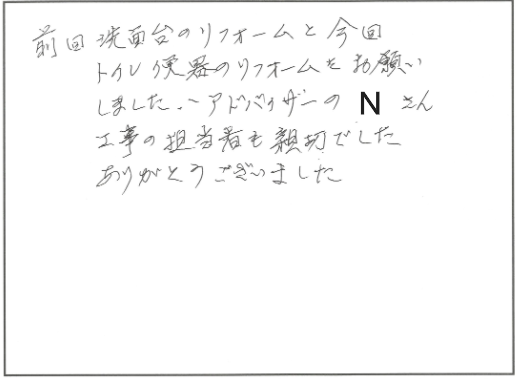 前回洗面台のリフォームと今回
トイレ便器のリフォームをお願い
しました。アドバイザーの N さん
工事の担当者も親切でした
ありがとうございました